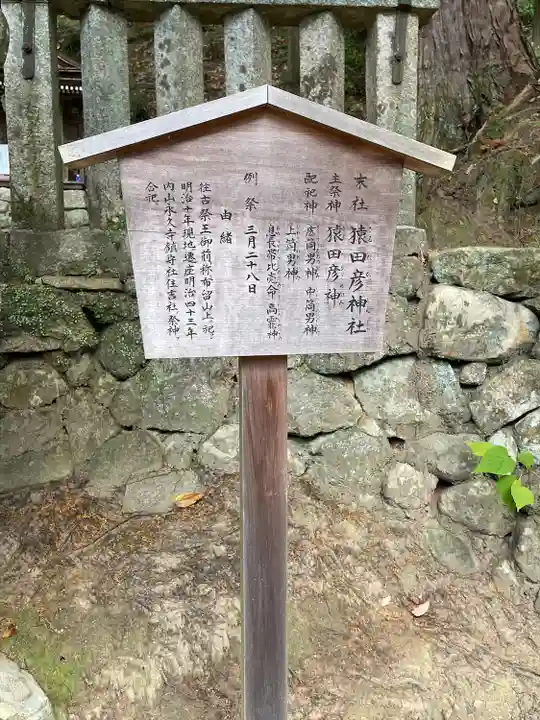 末社 猿田彦神社
主祭神 猿田彦神
配祀神 底筒男神 中筒男神
上筒男神
息長帯比売命 高龗神
例祭 三月二十八日
由緒
往古祭王御前称布留山上祀
明治十年現地遷座明治四十三年
内山永久寺鎮守社住吉社祭神
合祀